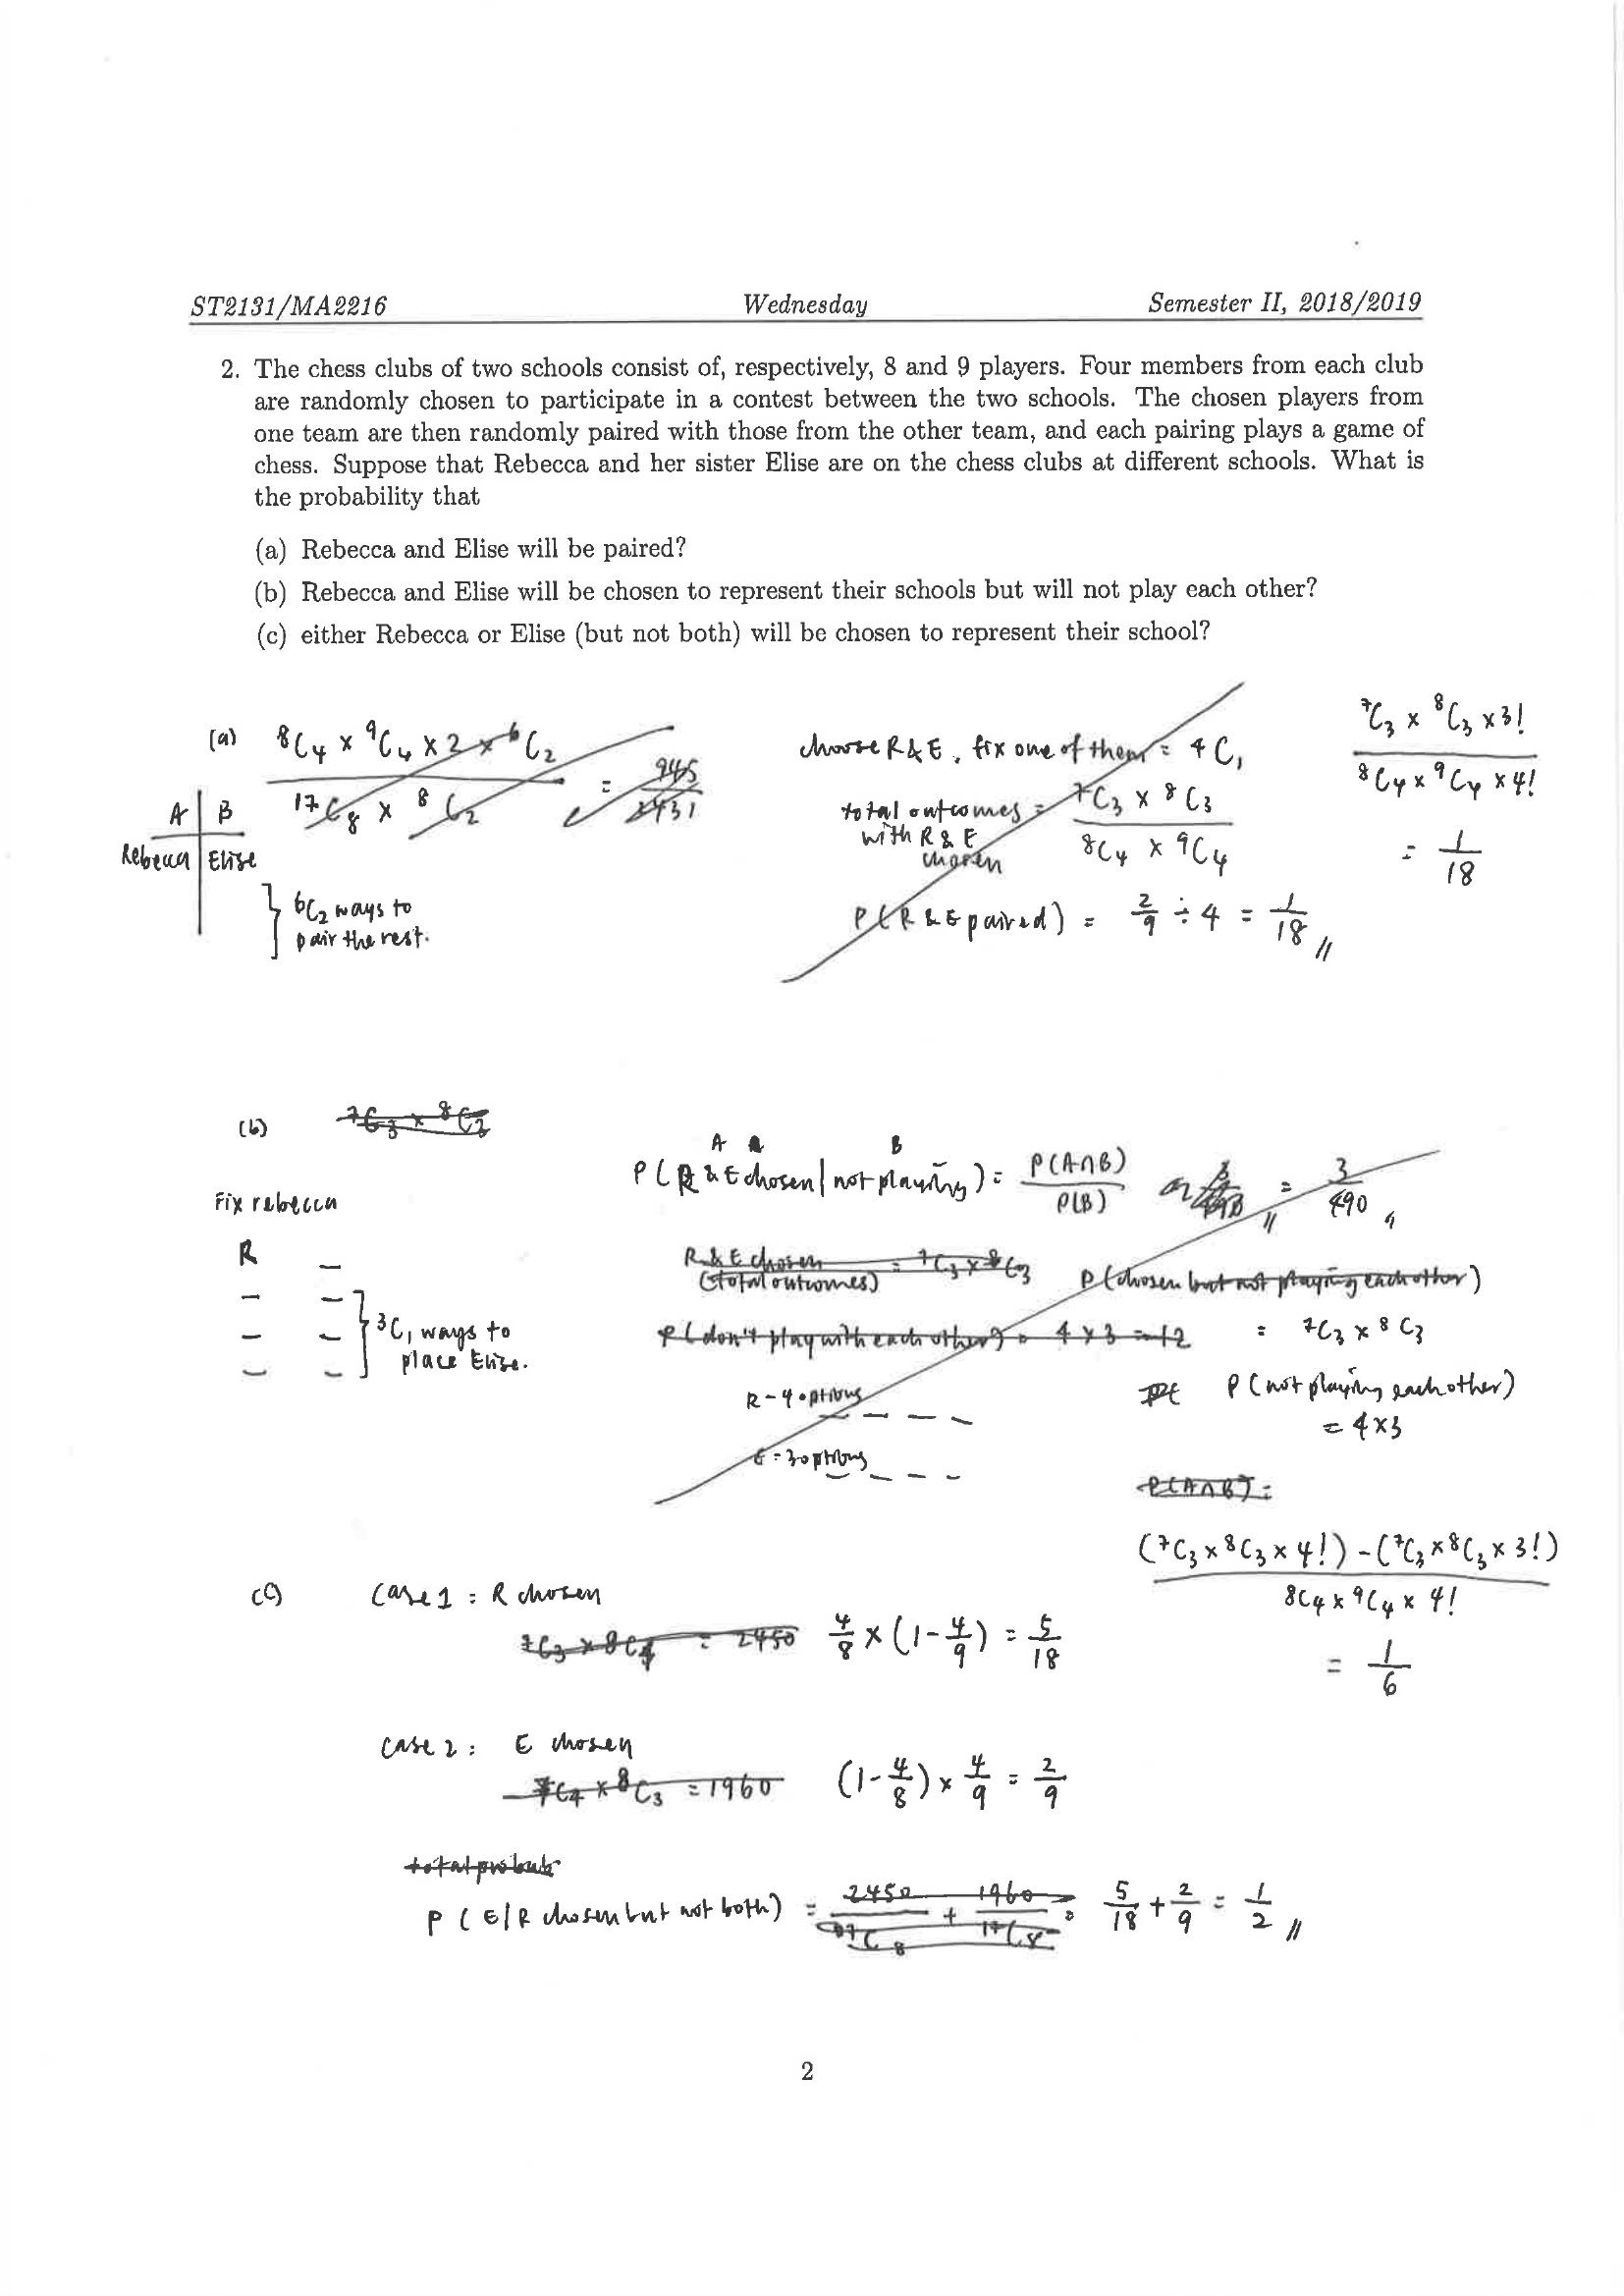 ST2131/MA2216 Wednesday Semester II, 2018/2019
2. The chess clubs of two schools consist of, respectively, 8 and 9 players. Four members from each club
are randomly chosen to participate in a contest between the two schools. The chosen players from
one team are then randomly paired with those from the other team, and each pairing plays a game of
chess. Suppose that Rebecca and her sister Elise are on the chess clubs at different schools. What is
the probability that
(a) Rebecca and Elise will be paired?
(b) Rebecca and Elise will be chosen to represent their schools but will not play each other?
(c) either Rebecca or Elise (but not both) will be chosen to represent their school?
(a) 8C4 x 9C4 x 2 x 6C2
17C8 x 8C2
= 945/2431
A B
Rebecca Elise
6C2 ways to
pair the rest.
choose R & E, fix one of them = 4C1
total outcomes = 7C3 x 8C3
with R & E
chosen
8C4 x 9C4
P(R & E paired) = 2/9 ÷ 4 = 1/18 //
7C3 x 8C3 x 3!
8C4 x 9C4 x 4!
= 1/18
(b) 7C3 x 8C3
Fix rebecca
R _
_ _
_ _
_ _
3C1 ways to
place Elise.
A B
P(R & E chosen | not playing) = P(A∩B)/P(B) = 3/490
R & E chosen = 7C3 x 8C3
(total outcomes)
P(chosen but not playing each other)
P(don't play with each other) = 4 x 3 = 12
= 7C3 x 8C3
R - 4 options
_ _ _ _
E = 3 options
_ _ _ _
P(not playing each other)
= 4x3
P(A∩B) =
(7C3 x 8C3 x 4!) - (7C3 x 8C3 x 3!)
8C4 x 9C4 x 4!
= 1/6
(c) Case 1 = R chosen
7C3 x 8C4 = 2450 4/8 x (1-4/9) = 5/18
Case 2 : E chosen
7C4 x 8C3 = 1960 (1-4/8) x 4/9 = 2/9
P(E/R chosen but not both) = 2450/17C8 + 1960/17C8 = 5/18 + 2/9 = 1/2 //
2